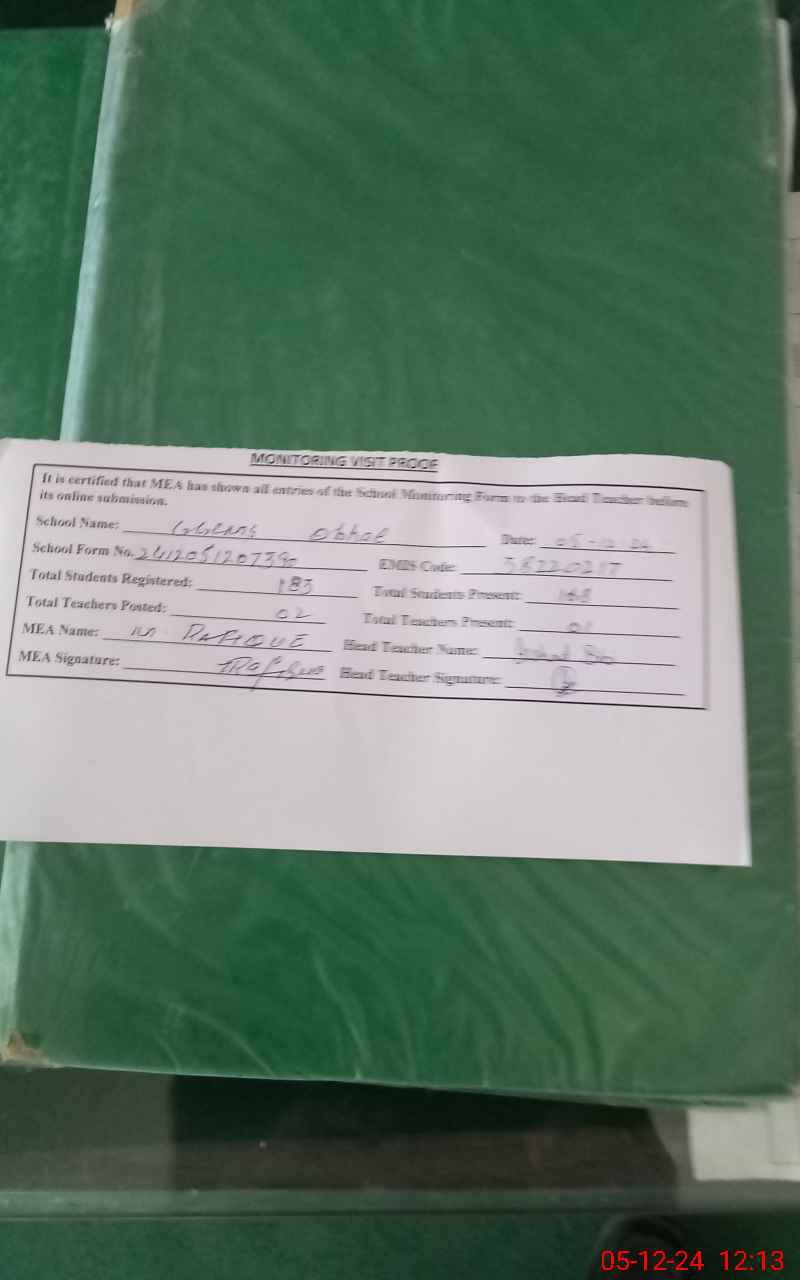 MONITORING VISIT PROOF
It is certified that MEA has shown all entries of the School Monitoring Form to the Head Teacher before
its online submission.
School Name: Date: 05-12-24
School Form No. 2412051207390 EMIS Code:
Total Students Registered: 183 Total Students Present: 168
Total Teachers Posted: 02 Total Teachers Present: 01
MEA Name: M RAFIQUE Head Teacher Name:
MEA Signature: Head Teacher Signature:
05-12-24 12:13